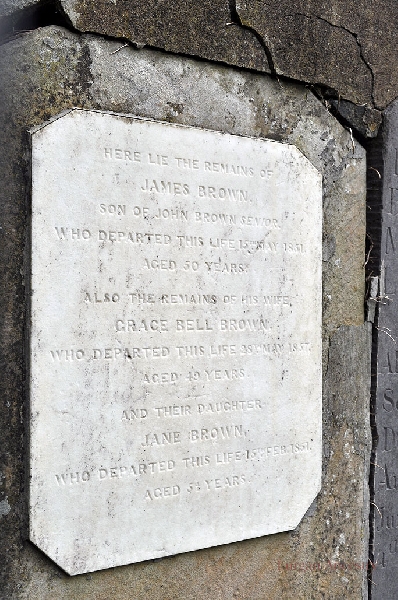 HERE LIE THE REMAINS OF
JAMES BROWN,
SON OF JOHN BROWN SENIOR,
WHO DEPARTED THIS LIFE 15TH MAY 1851,
AGED 50 YEARS.
ALSO THE REMAINS OF HIS WIFE,
GRACE BELL BROWN,
WHO DEPARTED THIS LIFE 28TH MAY 1857,
AGED 49 YEARS.
AND THEIR DAUGHTER
JANE BROWN,
WHO DEPARTED THIS LIFE 15TH FEB. 1851.
AGED YEARS.